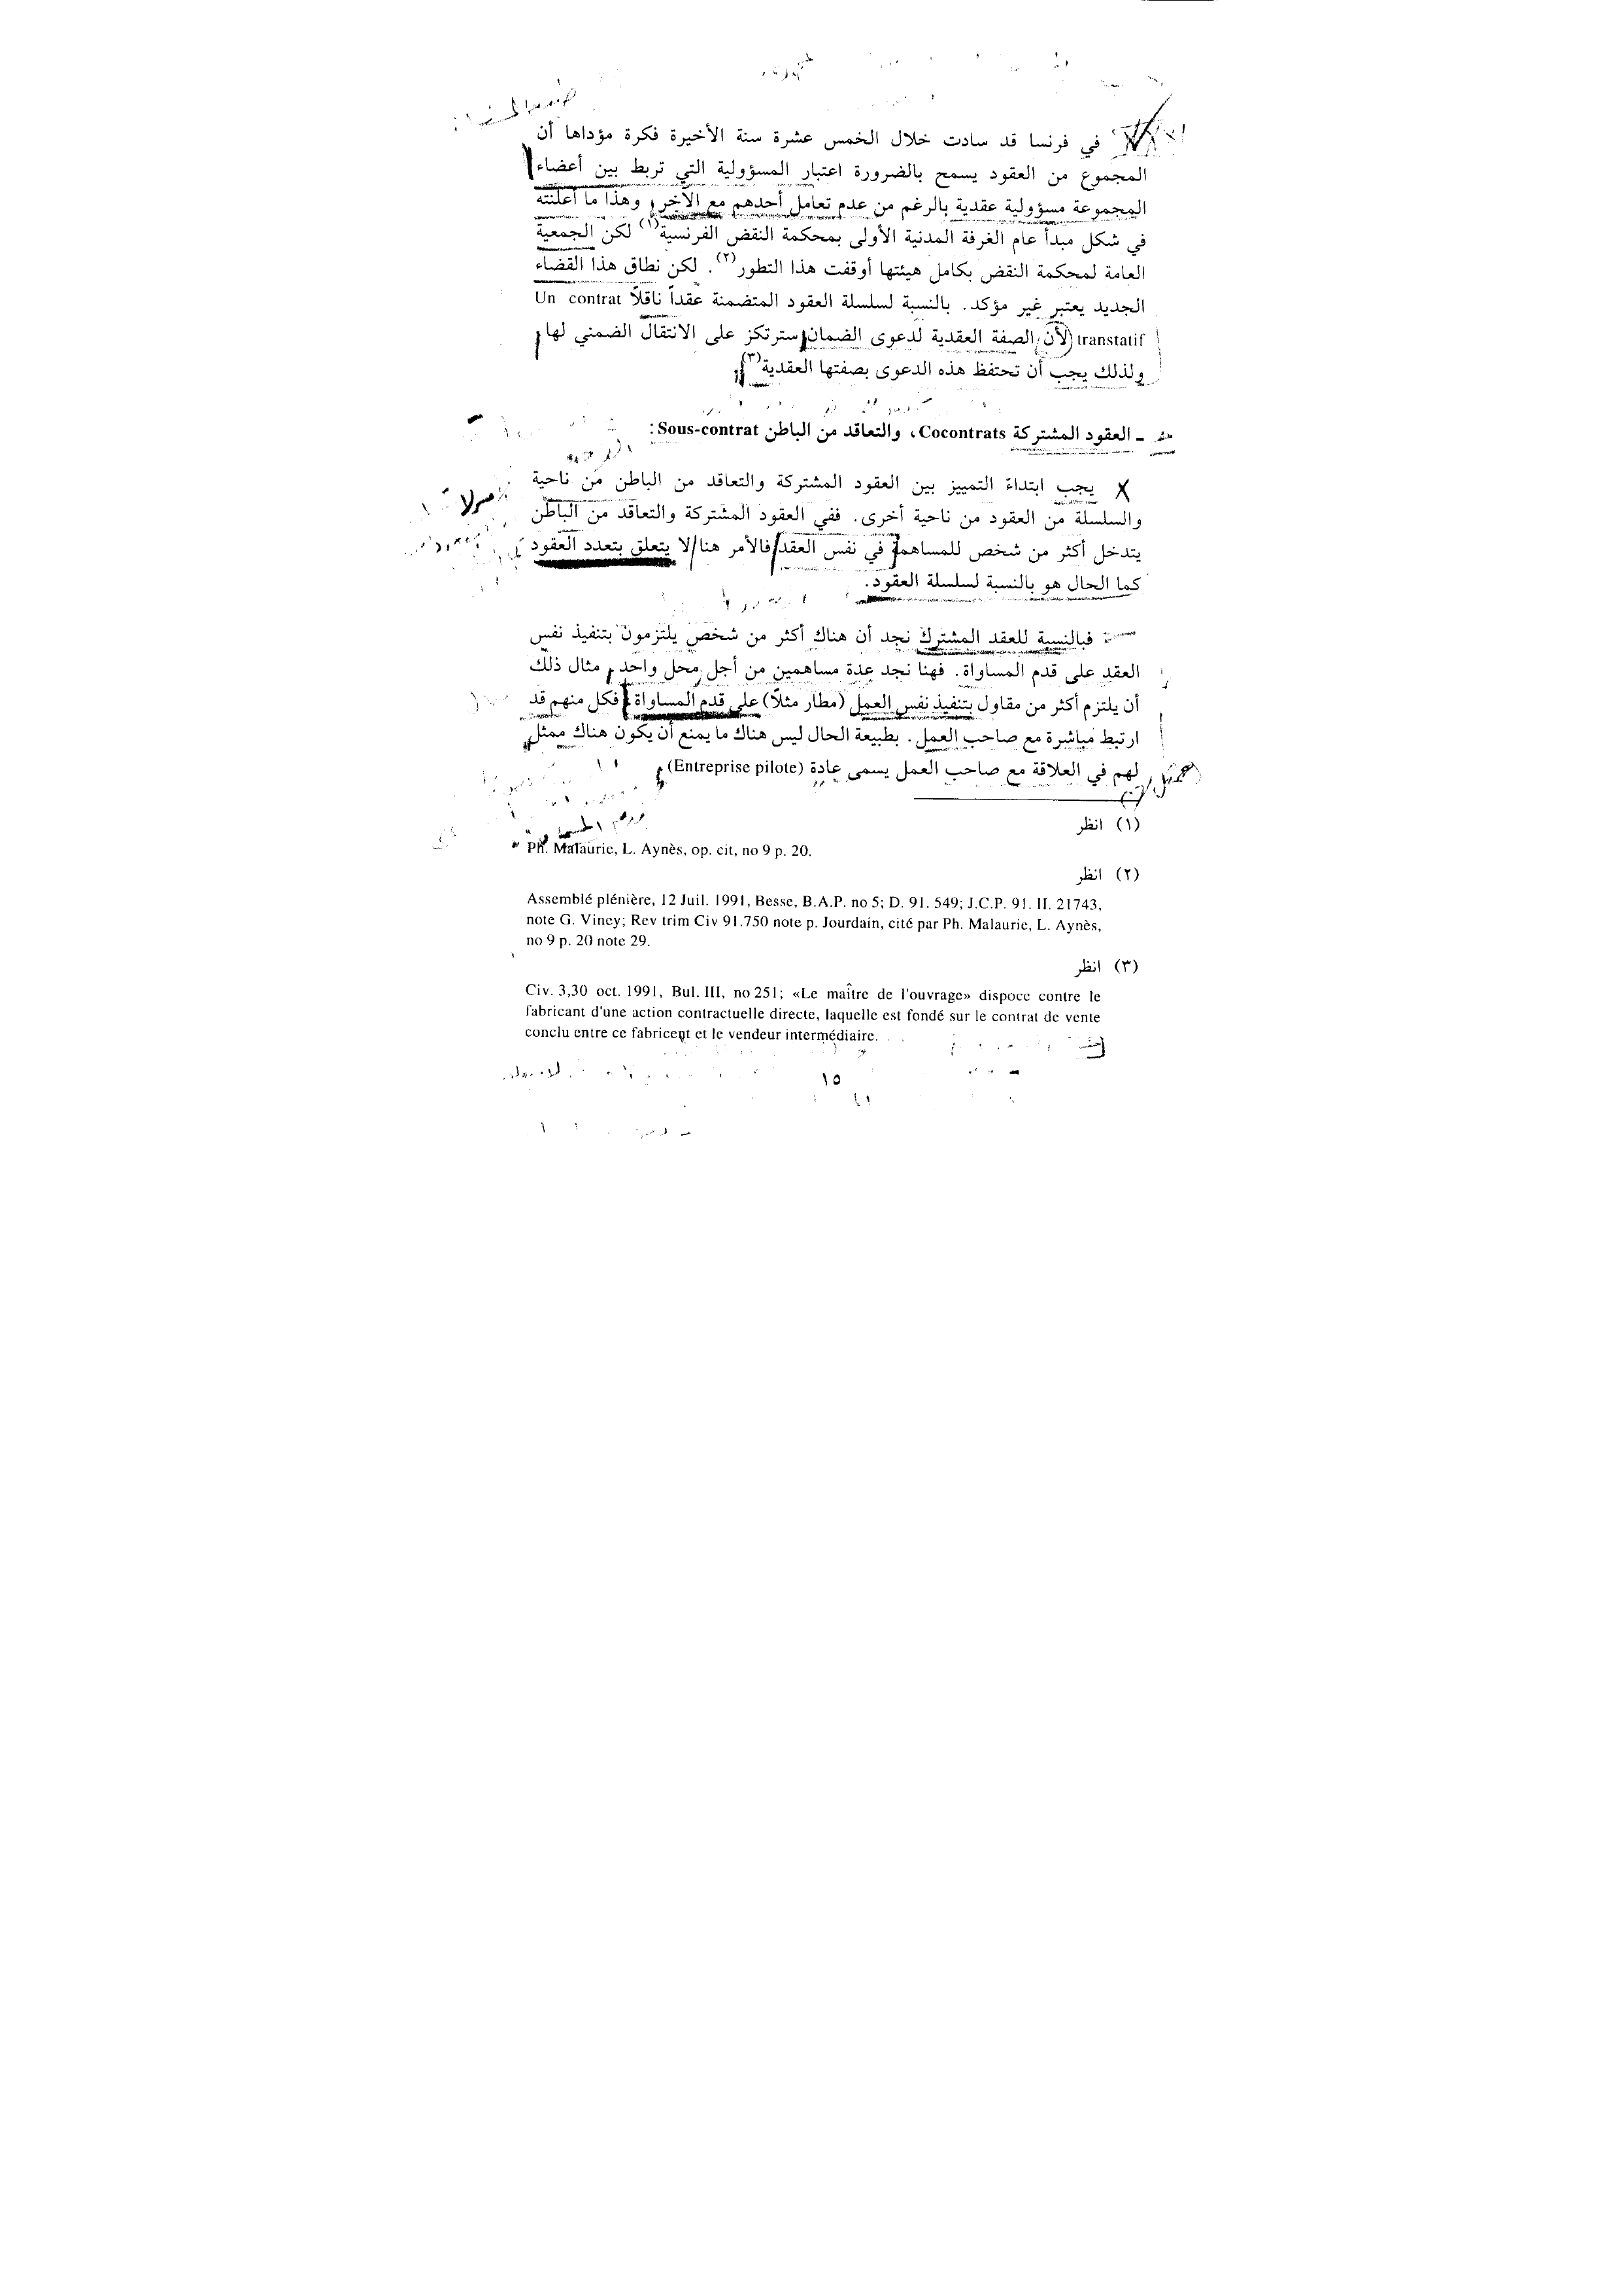 في فرنسا قد سادت خلال الخمس عشرة سنة الأخيرة فكرة مؤداها أن
المجموع من العقود يسمح بالضرورة اعتبار المسؤولية التي تربط بين أعضاء
المجموعة مسؤولية عقدية بالرغم من عدم تعامل أحدهم مع الآخر، وهذا ما أعلنته
في شكل مبدأ عام الغرفة المدنية الأولى بمحكمة النقض الفرنسية(١) لكن الجمعية
العامة لمحكمة النقض بكامل هيئتها أوقفت هذا التطور(٢). لكن نطاق هذا القضاء
الجديد يعتبر غير مؤكد. بالنسبة لسلسلة العقود المتضمنة عقداً ناقلاً Un contrat
transtatif لأن الصفة العقدية لدعوى الضمان سترتكز على الانتقال الضمني لها،
ولذلك يجب أن تحتفظ هذه الدعوى بصفتها العقدية(٣).
ـ العقود المشتركة Cocontrats، والتعاقد من الباطن Sous-contrat:
يجب ابتداءً التمييز بين العقود المشتركة والتعاقد من الباطن من ناحية
والسلسلة من العقود من ناحية أخرى. ففي العقود المشتركة والتعاقد من الباطن
يتدخل أكثر من شخص للمساهمة في نفس العقد فالأمر هنا لا يتعلق بتعدد العقود
كما الحال هو بالنسبة لسلسلة العقود.
فبالنسبة للعقد المشترك نجد أن هناك أكثر من شخص يلتزمون بتنفيذ نفس
العقد على قدم المساواة. فهنا نجد عدة مساهمين من أجل محل واحد، مثال ذلك
أن يلتزم أكثر من مقاول بتنفيذ نفس العمل (مطار مثلاً) على قدم المساواة فكل منهم قد
ارتبط مباشرة مع صاحب العمل. بطبيعة الحال ليس هناك ما يمنع أن يكون هناك ممثل
لهم في العلاقة مع صاحب العمل يسمى عادة (Entreprise pilote)
(١) انظر
Ph. Malaurie, L. Aynès, op. cit, no 9 p. 20.
(٢) انظر
Assemblé plénière, 12 Juil. 1991, Besse, B.A.P. no 5; D. 91. 549; J.C.P. 91. II. 21743,
note G. Viney; Rev trim Civ 91.750 note p. Jourdain, cité par Ph. Malaurie, L. Aynès,
no 9 p. 20 note 29.
(٣) انظر
Civ. 3,30 oct. 1991, Bul. III, no 251; «Le maître de l'ouvrage» dispoce contre le
fabricant d'une action contractuelle directe, laquelle est fondé sur le contrat de vente
conclu entre ce fabricent et le vendeur intermédiaire.
١٥